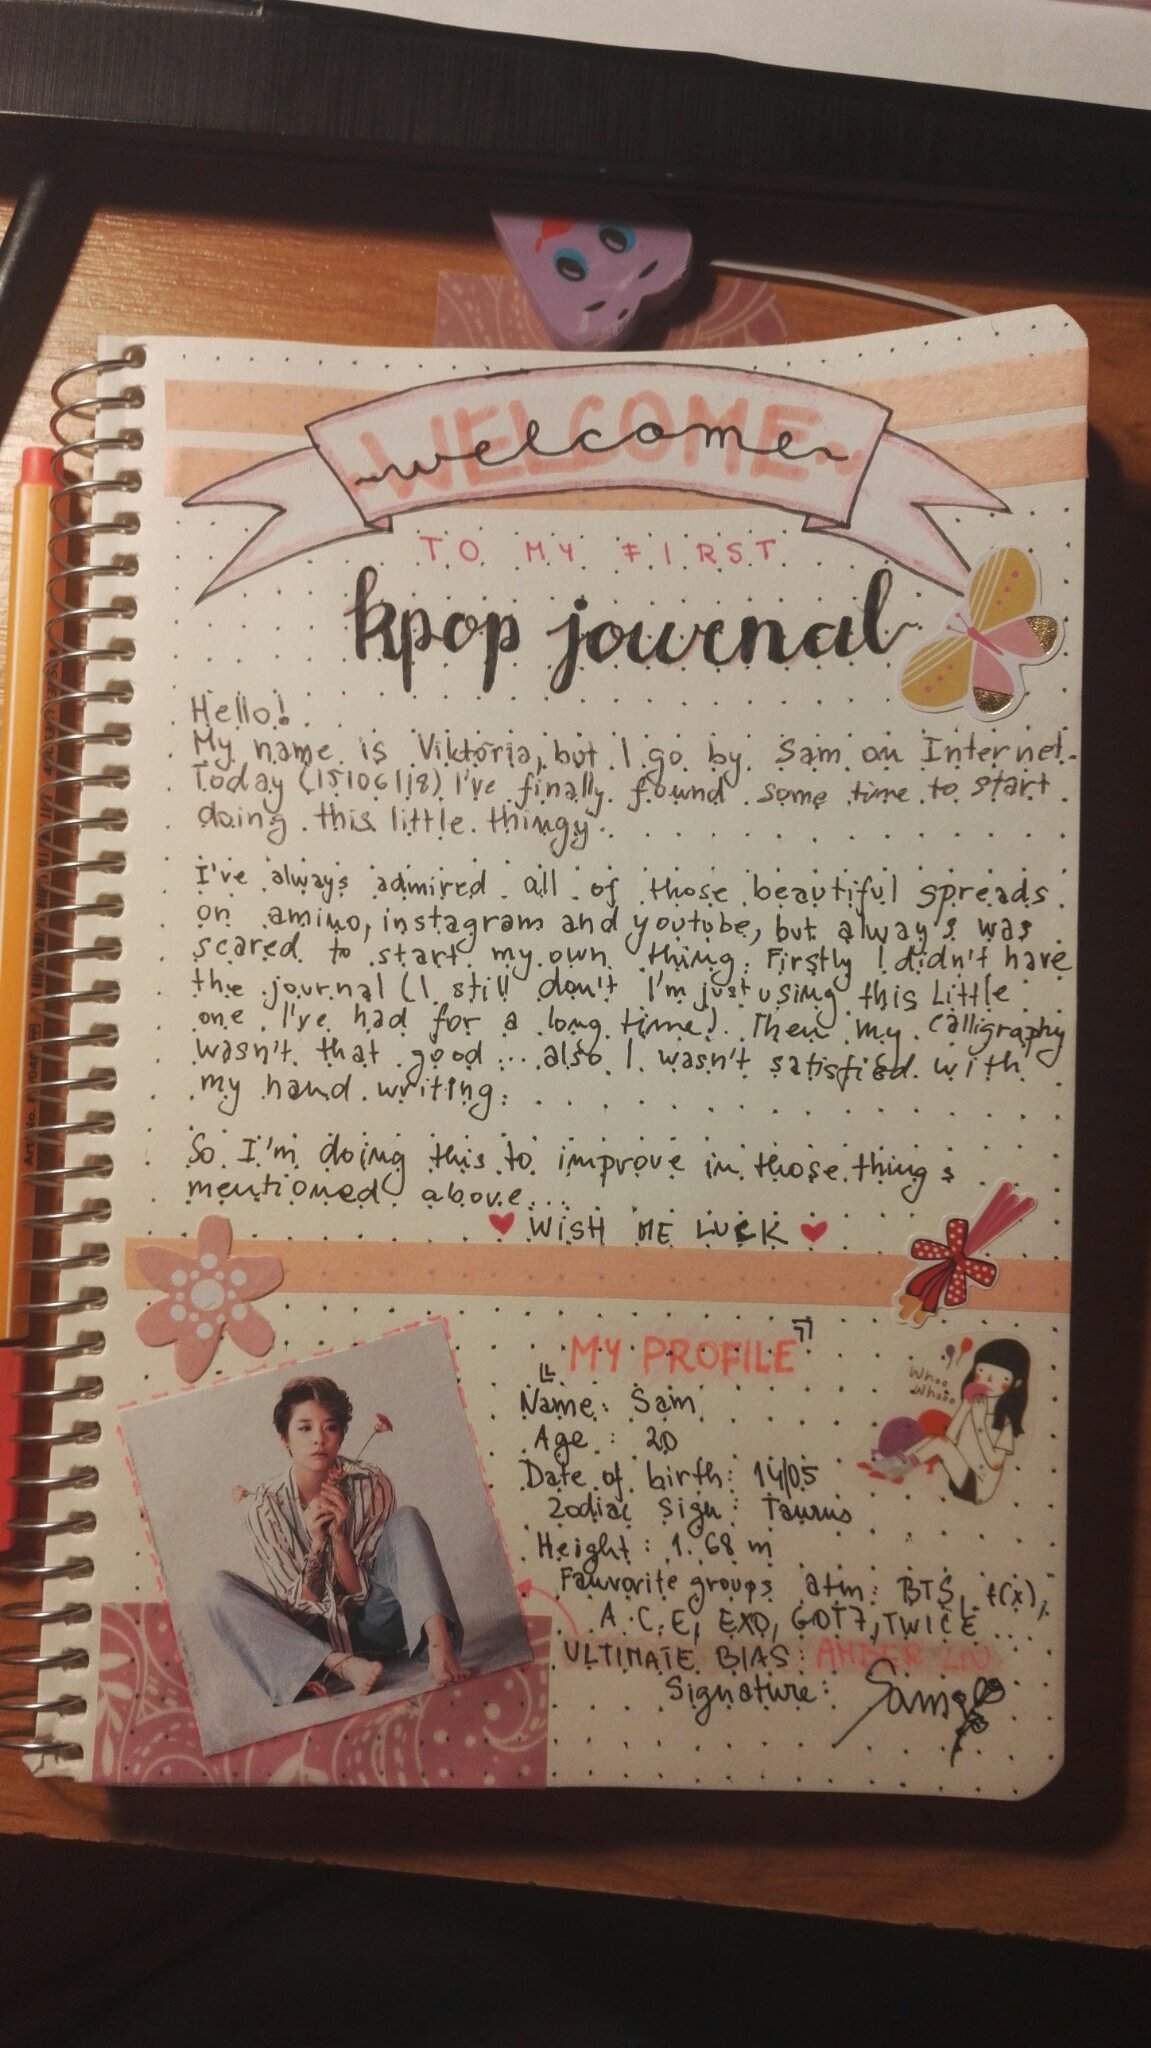 WELCOME
~welcome~
TO MY FIRST
kpop journal
Hello!
My name is Viktória, but I go by Sam on Internet.
Today (15/06/18) I've finally found some time to start
doing this little thingy.
I've always admired all of those beautiful spreads
on amino, instagram and youtube, but always was
scared to start my own thing. Firstly I didn't have
the journal (I still don't I'm just using this little
one I've had for a long time). Then my calligraphy
wasn't that good... also I wasn't satisfied with
my hand writing.
So I'm doing this to improve in those things
mentioned above...
♥ WISH ME LUCK ♥
MY PROFILE
Name: Sam
Age : 20
Date of birth: 14/05
Zodiac sign: Taurus
Height: 1.68 m
Fauvorite groups atm: BTS, f(x),
A.C.E, EXO, GOT7, TWICE...
ULTIMATE BIAS: AMBER LIU
Signature: Sam
Whoo
Whooo